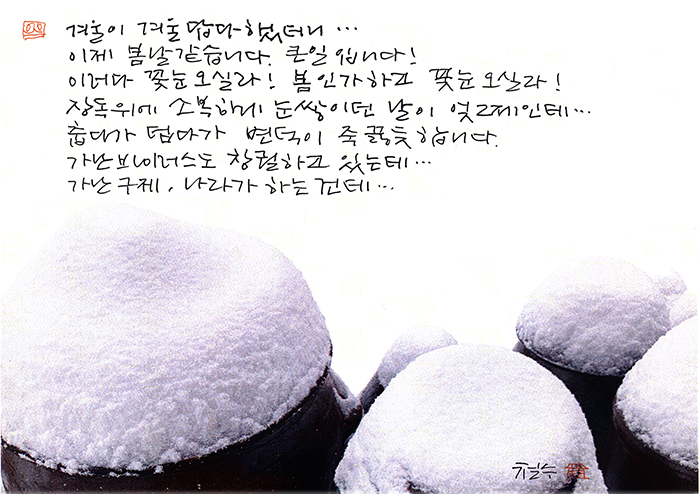 겨울이 겨울답다 했더니 ...
이제 봄날같습니다. 큰일입니다!
이러다 꽃눈 오실라! 봄인가하고 꽃눈 오실라!
장독위에 소복하게 눈쌓이던 날이 엊그제인데...
춥다가 덥다가 변덕이 죽 끓듯 합니다.
가난 브이러스도 창궐하고 있는데...
가난 구제, 나라가 하는 건데...
철수